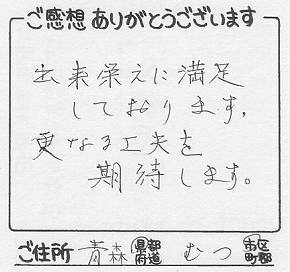 ご感想ありがとうございます
出来栄えに満足
しております。
更なる工夫を
期待します。
ご住所 青森 都道府県 むつ 市区町郡